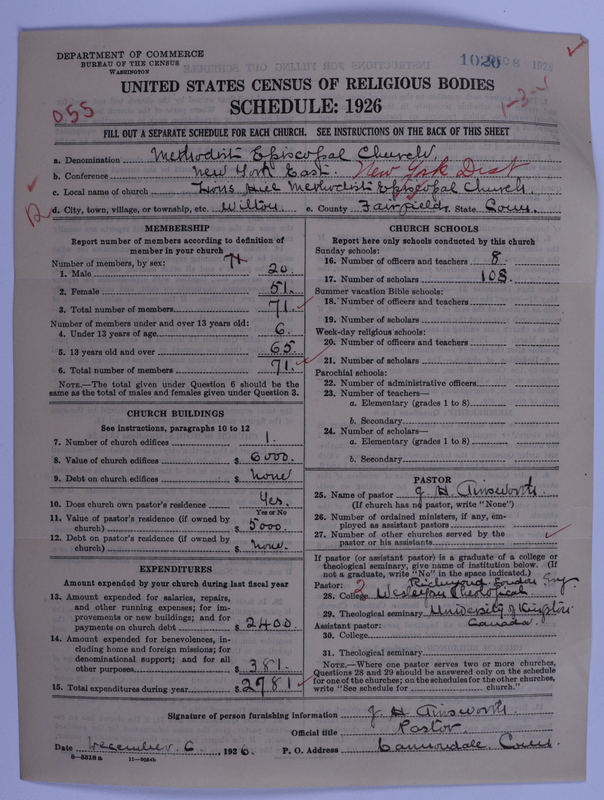 DEPARTMENT OF COMMERCE
BUREAU OF THE CENSUS
WASHINGTON
1020 8 1926
UNITED STATES CENSUS OF RELIGIOUS BODIES
SCHEDULE: 1926
055
1-3-
FILL OUT A SEPARATE SCHEDULE FOR EACH CHURCH. SEE INSTRUCTIONS ON THE BACK OF THIS SHEET
a. Denomination Methodist Episcopal Church
b. Conference New York East. New York Dist
c. Local name of church Zions Hill Methodist Episcopal Church.
d. City, town, village, or township, etc. Wilton e. County Fairfield, State Conn.
MEMBERSHIP
Report number of members according to definition of member in your church
Number of members, by sex: 71
1. Male 20
2. Female 51.
3. Total number of members 71.
Number of members under and over 13 years old:
4. Under 13 years of age 6.
5. 13 years old and over 65
6. Total number of members 71.
NOTE.—The total given under Question 6 should be the same as the total of males and females given under Question 3.
CHURCH BUILDINGS
See instructions, paragraphs 10 to 12
7. Number of church edifices 1.
8. Value of church edifices $ 6000.
9. Debt on church edifices $ None
10. Does church own pastor's residence Yes.
Yes or No
11. Value of pastor's residence (if owned by
church) $ 5000.
12. Debt on pastor's residence (if owned by
church) $ None.
EXPENDITURES
Amount expended by your church during last fiscal year
13. Amount expended for salaries, repairs,
and other running expenses; for im-
provements or new buildings; and for
payments on church debt $ 2400.
14. Amount expended for benevolences, in-
cluding home and foreign missions; for
denominational support; and for all
other purposes $ 381.
15. Total expenditures during year $ 2781
CHURCH SCHOOLS
Report here only schools conducted by this church
Sunday schools:
16. Number of officers and teachers 8
17. Number of scholars 108.
Summer vacation Bible schools:
18. Number of officers and teachers
19. Number of scholars
Week-day religious schools:
20. Number of officers and teachers
21. Number of scholars
Parochial schools:
22. Number of administrative officers
23. Number of teachers—
a. Elementary (grades 1 to 8)
b. Secondary
24. Number of scholars—
a. Elementary (grades 1 to 8)
b. Secondary
PASTOR
25. Name of pastor J. H. Ainsworth.
(If church has no pastor, write "None")
26. Number of ordained ministers, if any, em-
ployed as assistant pastors
27. Number of other churches served by the
pastor or his assistants
If pastor (or assistant pastor) is a graduate of a college or
theological seminary, give name of institution below. (If
not a graduate, write "No" in the space indicated.)
Pastor: 2 Richmond London Eng
28. College Wesleyan Theological
29. Theological seminary University of Kingston
Assistant pastor: Canada.
30. College
31. Theological seminary
NOTE.—Where one pastor serves two or more churches,
Questions 28 and 29 should be answered only on the schedule
for one of the churches; on the schedules for the other churches,
write "See schedule for church."
Signature of person furnishing information J. H. Ainsworth.
Official title Pastor.
Date December 6 1926. P. O. Address Cannondale, Conn.
8—5518 a 11—9064b